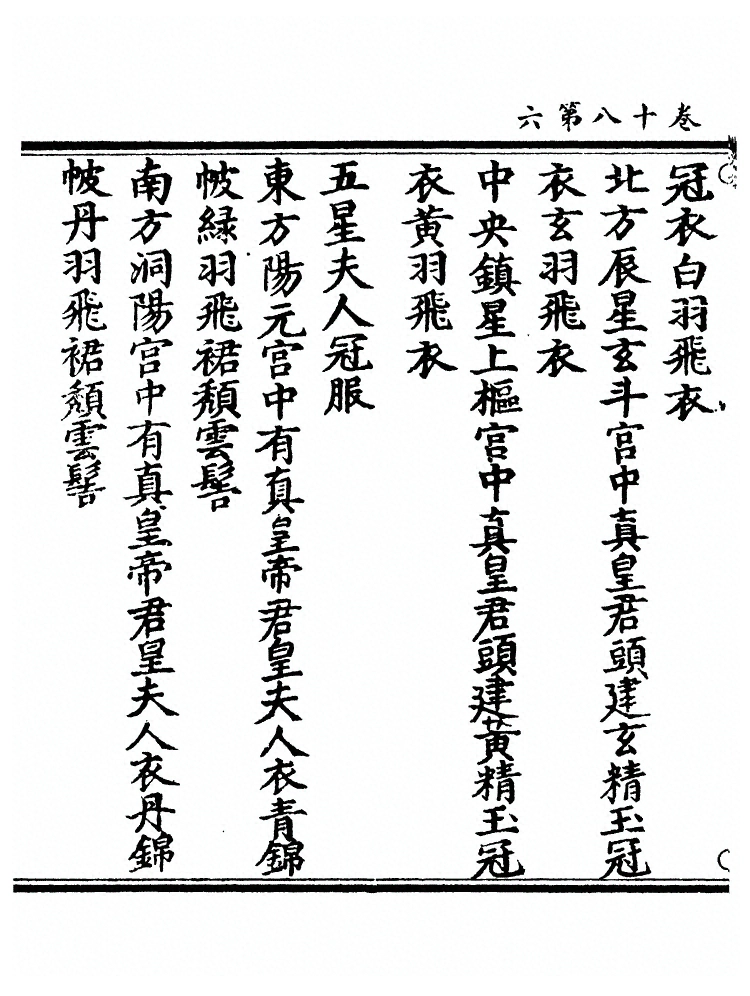 卷十八第六
冠衣白羽飛衣
北方辰星玄斗宫中真皇君頭建玄精玉冠
衣玄羽飛衣
中央鎮星上樞宫中真皇君頭建黃精玉冠
衣黃羽飛衣
五星夫人冠服
東方陽元宫中有真皇帝君皇夫人衣青錦
帔緑羽飛裙頹雲髻
南方洞陽宫中有真皇帝君皇夫人衣丹錦
帔丹羽飛裙頹雲髻